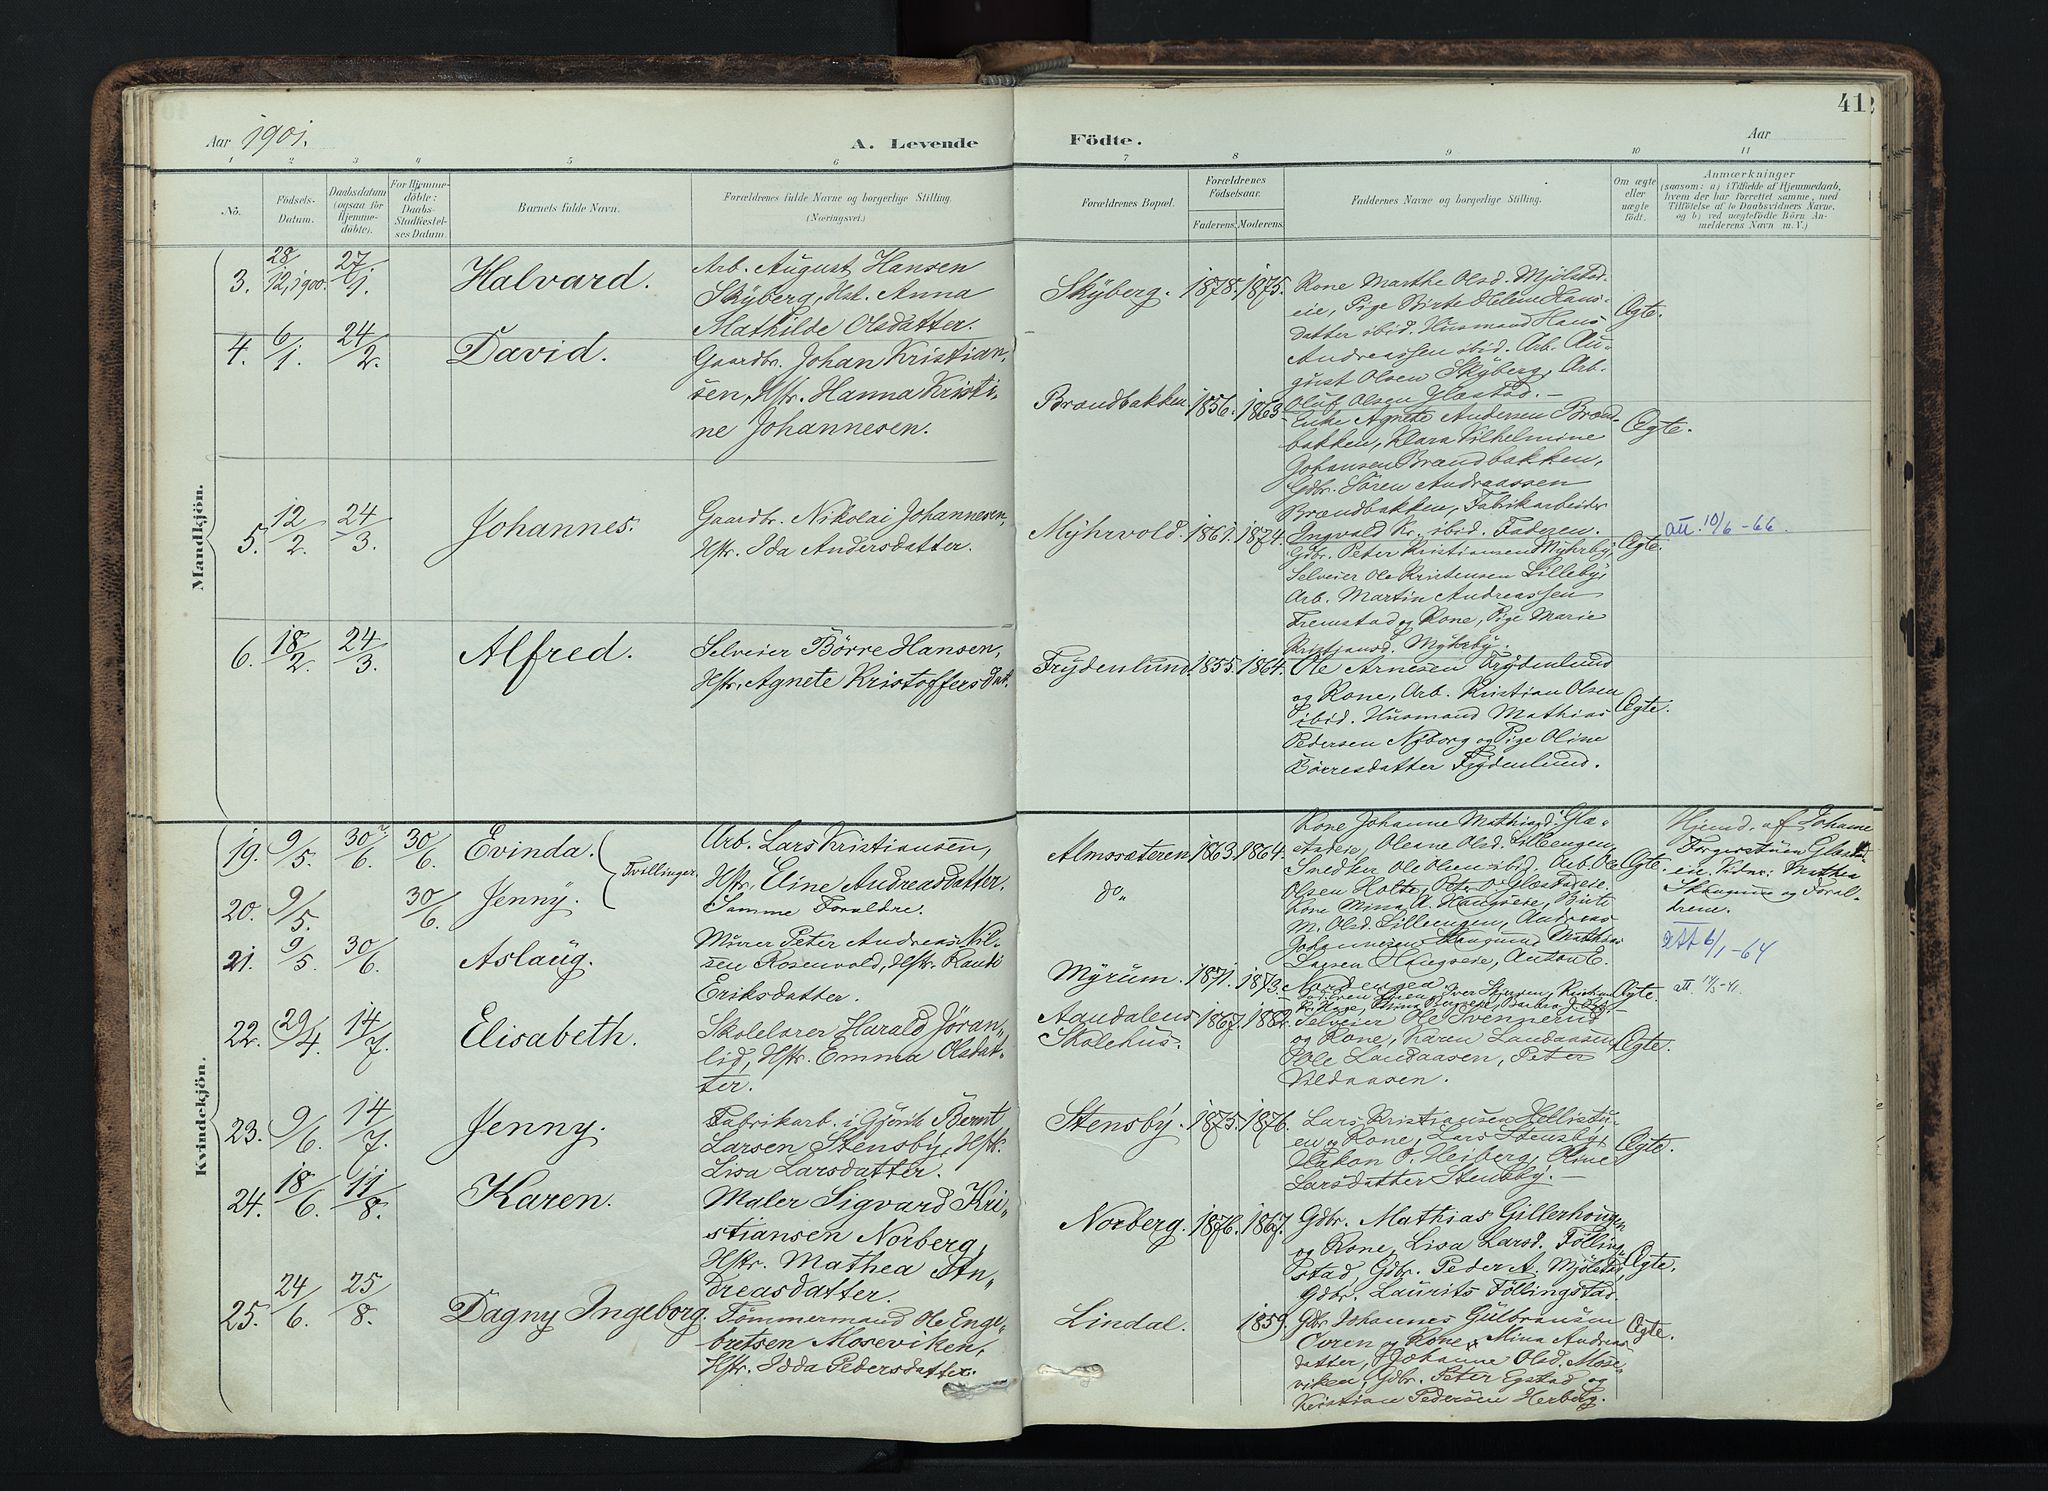 Aar 1901.
A. Levende
Födte.
Aar
41
1 2 3 4 5 6 7 8 9 10 11
No.
Födsels-
Datum.
Daabsdatum
(ogsaa for
Hjemme-
döbte).
For Hjemme-
döbte:
Daabs-
Stadfæstel-
ses Datum.
Barnets fulde Navn.
Forældrenes fulde Navne og borgerlige Stilling.
(Næringsvei.)
Forældrenes Bopæl.
Forældrenes
Födselsaar.
Faderens. Moderens.
Faddernes Navne og borgerlige Stilling.
Om ægte
eller
uægte
födt.
Anmærkninger
(saasom: a) i Tilfælde af Hjemmedaab,
hvem der har forrettet samme, med
Tilföielse af to Daabsvidners Navne,
og b) ved uægtefödte Börn An-
melderens Navn m. V.)
Mandkjön.
3. 28/12, 1900. 27/1. Halvard.
Arb. August Hansen
Skÿberg, Hst. Anna
Mathilde Olsdatter.
Skÿberg. 1878. 1875.
Kone Marthe Olsd. Mjölstad-
eie, Pige Birte Helene Hans-
datter ibid. Husmand Hans
Andreassen ibid. Arb. Au-
gust Olsen Skÿberg, Arb.
Oluf Olsen Glæstad. —
Ægte.
4. 6/1. 24/2. David.
Gaardbr. Johan Kristian-
sen, Hstr. Hanna Kristi-
ne Johannesen.
Brændbakken. 1856. 1863.
Enke Agnete Andersen Brænd-
bakken, Klara Vilhelmine
Johansen Brændbakken,
Gdbr. Sören Andreassen
Brændbakken, Fabrikarbeider
Ingvald Kr. ibid. Faderen.
Ægte.
5. 12/2. 24/3. Johannes.
Gaardbr. Nikolai Johannesen,
Hstr. Ida Andersdatter.
Mÿhrvold. 1861. 1874.
Gdbr. Peter Kristiansen Mÿhrbÿ,
Selveier Ole Kristensen Lillebÿ,
Arb. Martin Andreassen
Fremstad og Kone, Pige Marie
Kristjansd. Mÿhrbÿ.
Ægte.
att. 10/6 - 66.
6. 18/2. 24/3. Alfred.
Selveier Börre Hansen,
Hstr. Agnete Kristoffersdat.
Frÿdenlund. 1855. 1864.
Ole Arnesen Frÿdenlund
og Kone, Arb. Kristian Olsen
ibid. Husmand Mathias
Pedersen Nÿborg og Pige Oline
Börresdatter Frÿdenlund.
Ægte.
Kvindekjön.
19. 9/5. 30/6. 30/6. Evinda.
Tvillinger.
Arb. Lars Kristiansen,
Hstr. Eline Andreasdatter.
Almosæteren. 1863. 1864.
Kone Johanne Mathiasd. Glæ-
stadeie, Oleane Olsd. Lillengen,
Smed Ole Olsen ibid. Arb. Ole
Olsen Holte, Peter O. Glæstadeie.
Ægte.
Hjemd. af Johanne
Glæstad-
eie. Vidner: Mathea
og Foræl-
drene.
20. 9/5. 30/6. Jennÿ.
Samme Forældre.
do
Kone Mina A. Haugseie, Birte
M. Olsd. Lillengen, Andreas
Johannesen Mathias
Larsen Haugseie, Anton C.
Nordengen.
21. 9/5. 30/6. Aslaug.
Murer Peter Andreas Nil-
sen Rosenvold, Hstr. Randi
Eriksdatter.
Mÿrum. 1871. 1873.
Ægte.
Att 6/1 - 64
att. 14/5 - 41.
22. 29/4. 14/7. Elisabeth.
Skolelærer Harald Jöran-
lid, Hstr. Emma Olsdat-
ter.
Aandalens
Skolehus. 1867. 1882.
Selveier Ole Svennerud
og Kone, Karen Landaasen
Ole Landaasen, Peter
Vildaasen.
Ægte.
23. 9/6. 14/7. Jenny.
Fabrikarb. i Gjövik Bernt
Larsen Stensbÿ, Hstr.
Lisa Larsdatter.
Stensbÿ. 1875. 1876.
Lars Kristiansen Hellistu-
en og Kone, Lars Stensbÿ,
Hakon O. Heiberg, Oline
Larsdatter Stensbÿ. —
Ægte.
24. 18/6. 11/8. Karen.
Maler Sigvard Kri-
stiansen Norberg,
Hstr. Mathea An-
dreasdatter.
Norberg. 1876. 1867.
Gdbr. Mathias Gillerhougen
og Kone, Lisa Larsd. Fölling-
stad, Gdbr. Peder A. Mjölstad,
Gdbr. Laurits Föllingstad.
Ægte.
25. 24/6. 25/8. Dagny Ingeborg.
Tömmermand Ole Enge-
bretsen Moseviken,
Hstr. Idda Pedersdatter.
Lindal. 1859.
Gdbr. Johannes Gulbransen
Evren og Kone, Mina Andreas-
datter, Johanne Olsd. Mose-
viken, Gdbr. Peter Egstad og
Kristian Pedersen Herberg.
Ægte.